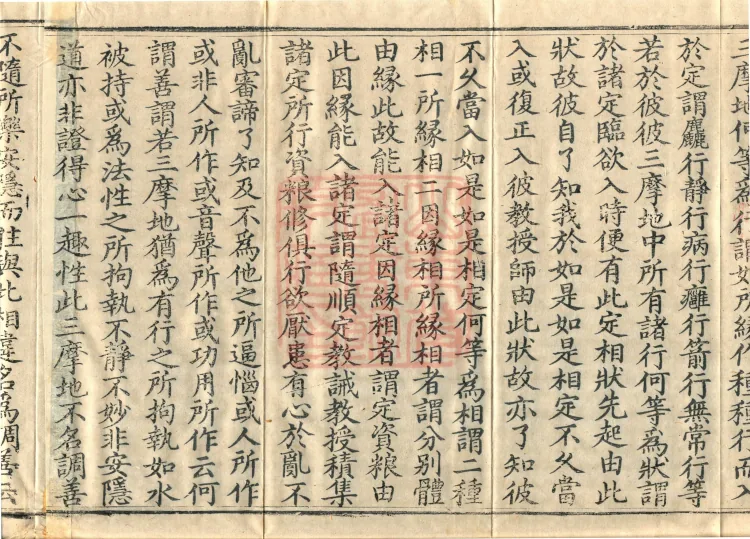 三摩地何等爲行謂如所緣作種種行而入
於定謂麤行靜行病行癰行箭行無常行等
若於彼彼三摩地中所有諸行何等爲狀謂
於諸定臨欲入時便有此定相狀先起由此
狀故彼自了知我於如是如是相定不久當
入或復正入彼教授師由此狀故亦了知彼
不久當入如是如是相定何等爲相謂二種
相一所緣相二因緣相所緣相者謂分別體
由緣此故能入諸定因緣相者謂定資粮由
此因緣能入諸定謂隨順定教誡教授積集
諸定所行資粮修俱行欲厭患有心於亂不
亂審諦了知及不爲他之所逼惱或人所作
或非人所作或音聲所作或功用所作云何
謂善謂若三摩地猶爲有行之所拘執如水
被持或爲法性之所拘執不靜不妙非安隱
道亦非證得心一趣性此三摩地不名調善
不隨所樂安隱而住與此相違名爲調善云